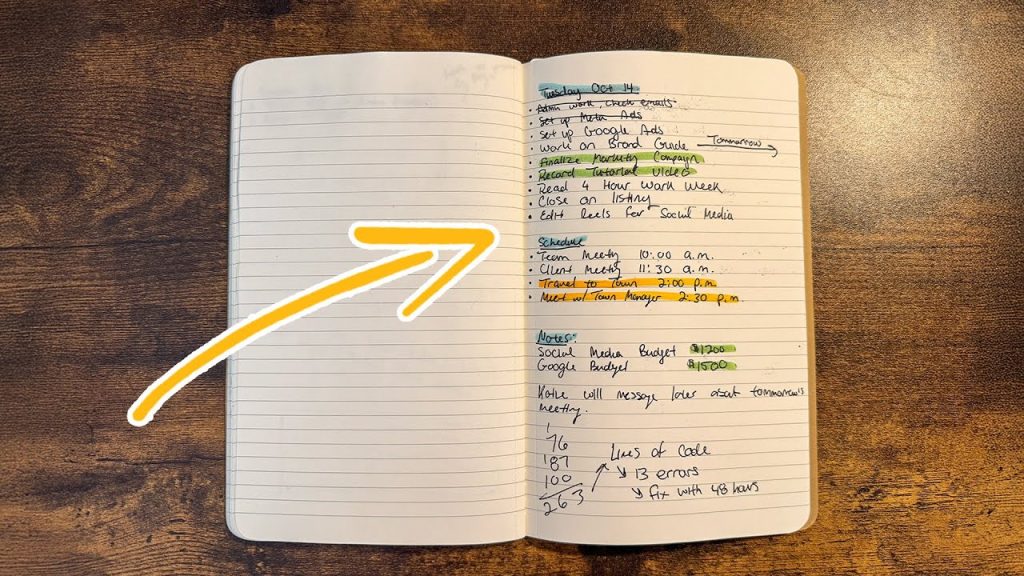 Tuesday Oct 14
• Admin work check emails
• Set up Meta Ads
• Set up Google Ads
• Work on Brand Guide Tommarow
• Finalize Marketing Campaign
• Record Tutorial Video
• Read 4 Hour Work Week
• Close on listing
• Edit Reels for Social Media
Schedule
• Team Meeting 10:00 a.m.
• Client Meeting 11:30 a.m.
• Travel to Town 2:00 p.m.
• Meet w/ Town Manager 2:30 p.m.
Notes:
Social Media Budget $1200
Google Budget $1500
will message later about tommarow's
meeting.
1
76
187
100
263
Lines of Code
13 errors
fix with 48 hours